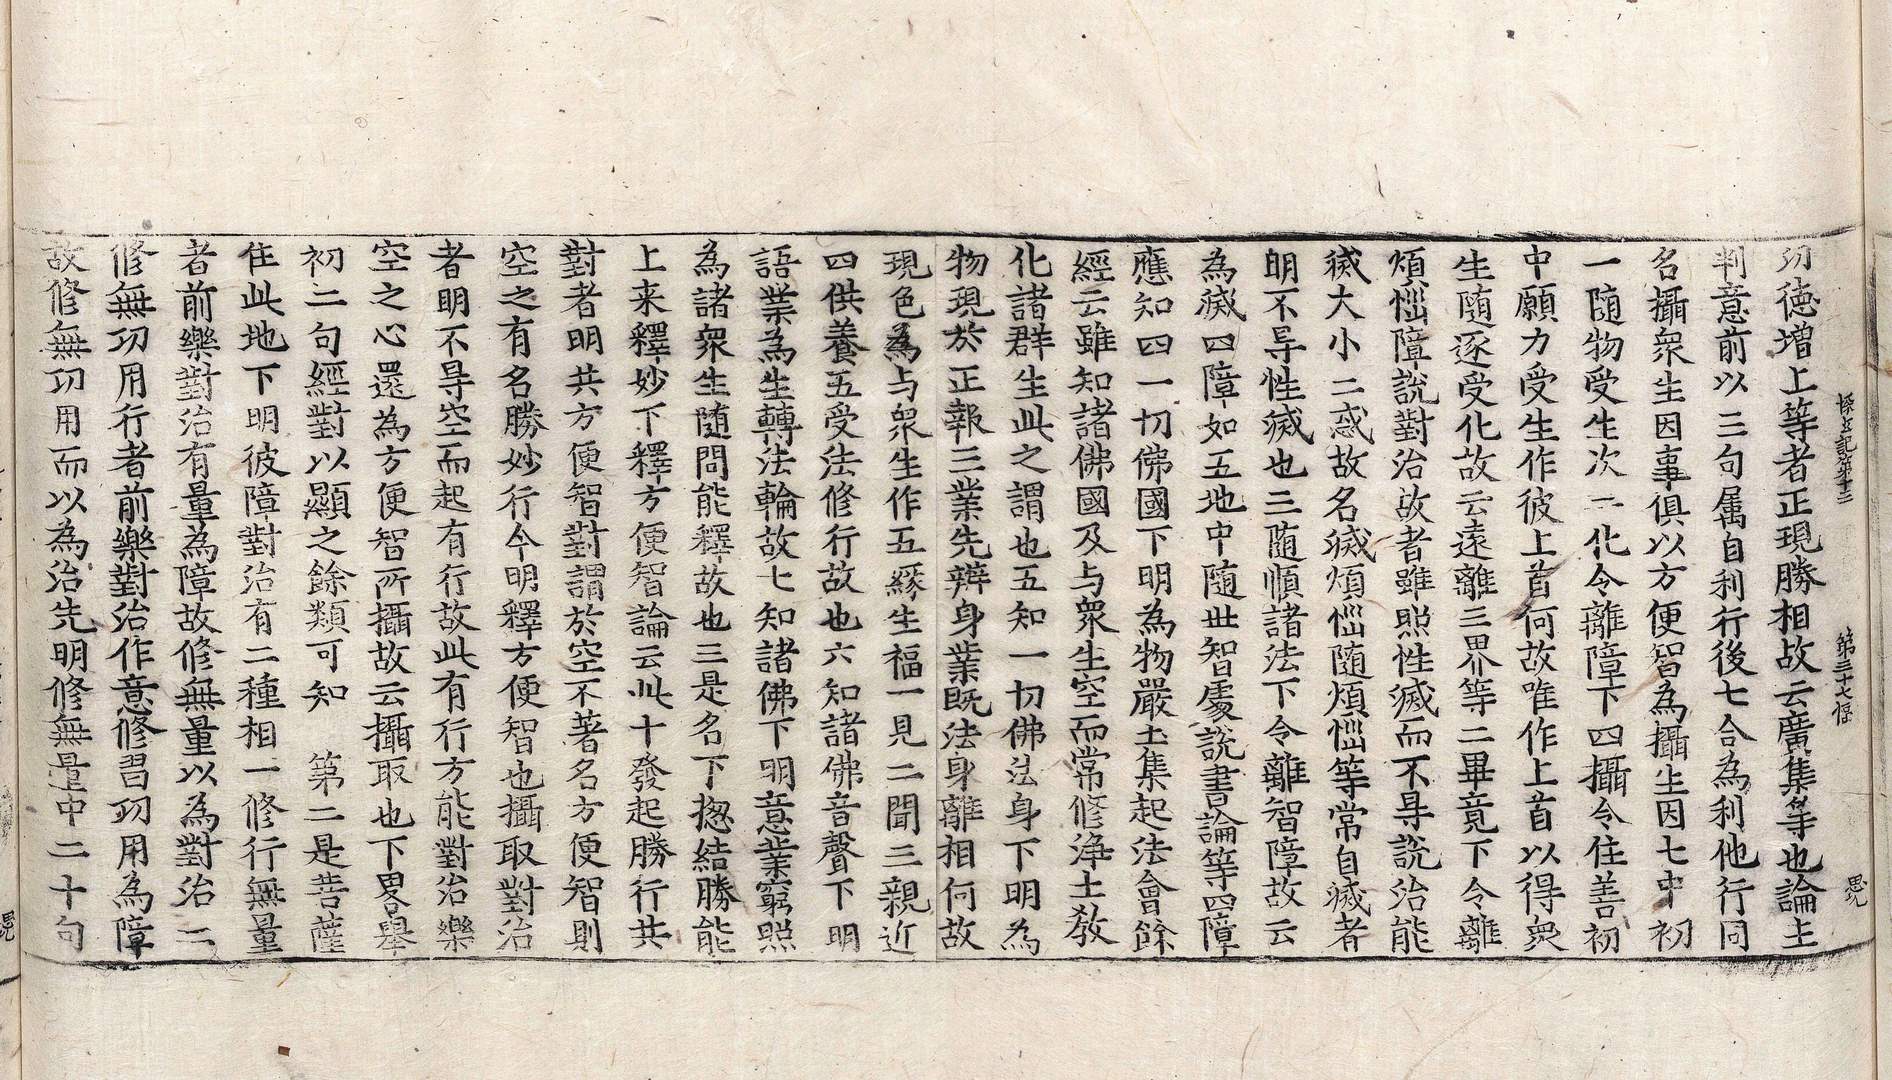 探玄記第十三 第三十七幅 思
功徳增上等者正現勝相故云廣集等也論主
判意前以三句属自利行後七合為利他行同
名攝衆生因事俱以方便智為攝生因七中初
一随物受生次二化令離障下四攝令住善初
中願力受生作彼上首何故唯作上首以得衆
生随逐受化故云遠離三界等二畢竟下令離
煩惱障說對治故者雖照性滅而不㝵說治能
滅大小二惑故名滅煩惱随煩惱等常自滅者
明不㝵性滅也三随順諸法下令離智障故云
為滅四障如五地中随世智處說書論等四障
應知四一切佛國下明為物嚴土集起法會餘
經云雖知諸佛國及与衆生空而常修淨土教
化諸群生此之謂也五知一切佛法身下明為
物現於正報三業先辨身業既法身離相何故
現色為与衆生作五緣生福一見二聞三親近
四供養五受法修行故也六知諸佛音聲下明
語業為生轉法輪故七知諸佛下明意業窮照
為諸衆生随問能釋故也三是名下揔結勝能
上来釋妙下釋方便智論云此十發起勝行共
對者明共方便智對謂於空不著名方便智則
空之有名勝妙行今明釋方便智也攝取對治
者明不㝵空而起有行故此有行方能對治樂
空之心還為方便智所攝故云攝取也下畧舉
初二句經對以顯之餘類可知　第二是菩薩
住此地下明彼障對治有二種相一修行無量
者前樂對治有量為障故修無量以為對治二
修無功用行者前樂對治作意修習功用為障
故修無功用而以為治先明修無量中二十句